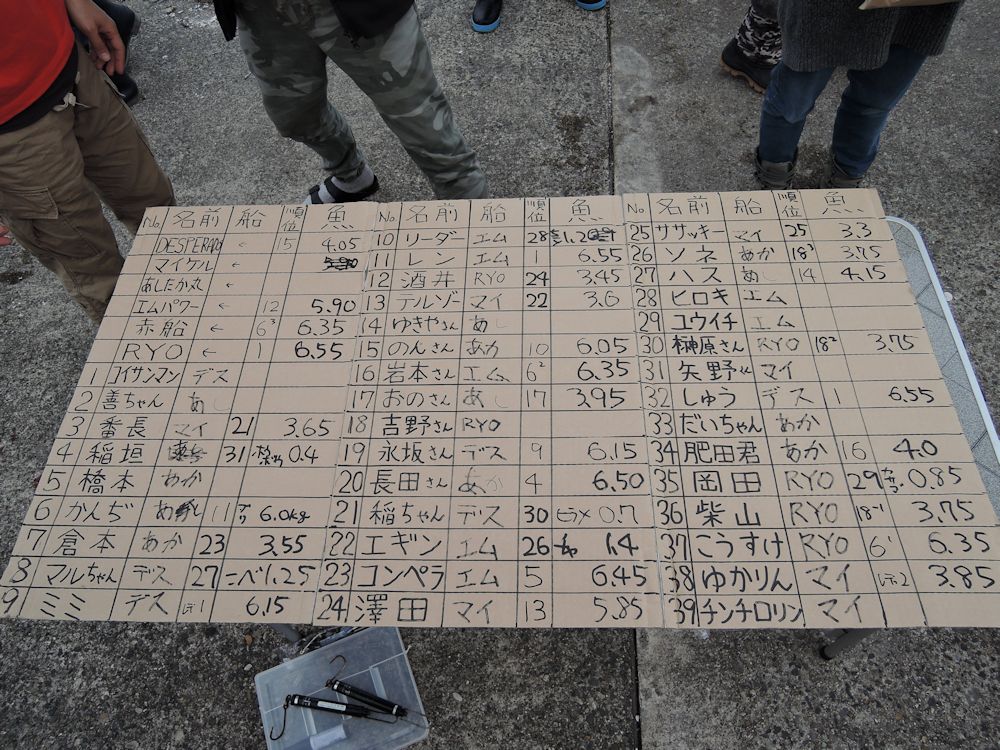 No 名前 船 順位 魚
DESPERADO ← 15 4.05
マイケル ←
あしたか丸 ←
エムパワー ← 12 5.90
赤船 ← 6³ 6.35
RYO ← 6.55
1 コイサンマン デス
2 善ちゃん あし
3 番長 マイ 21 3.65
4 稲垣 31 0.4
5 橋本 あか
6 かんぢ 11 6.0kg
7 倉本 あか 23 3.55
8 マルちゃん デス 27 ニベ 1.25
9 ミミ デス レディ1 6.15
No 名前 船 順位 魚
10 リーダー エム 28
11 レン エム 1 6.55
12 酒井 RYO 24 3.45
13 テルゾー マイ 22 3.6
14 ゆきやさん あし
15 のんさん あか 10 6.05
16 岩本さん エム 6² 6.35
17 おのさん あし 17 3.95
18 吉野さん RYO
19 永坂さん デス 9 6.15
20 長田さん あか 4 6.50
21 稲ちゃん デス 30 ヒラメ 0.7
22 エギン エム 26 1.4
23 コンペラ エム 5 6.45
24 澤田 マイ 13 5.85
No 名前 船 順位 魚
25 ササッキー マイ 25 3.3
26 ソネ あか 18³ 3.75
27 ハス あし 14 4.15
28 ヒロキ エム
29 ユウイチ エム
30 榊原さん RYO 18² 3.75
31 矢野 マイ
32 しゅう デス 1 6.55
33 だいちゃん あか
34 肥田君 あか 16 4.0
35 岡田 RYO 29 0.85
36 柴山 RYO 18⁻¹ 3.75
37 こうすけ RYO 6¹ 6.35
38 ゆかりん マイ レディ2 3.85
39 チンチロリン マイ